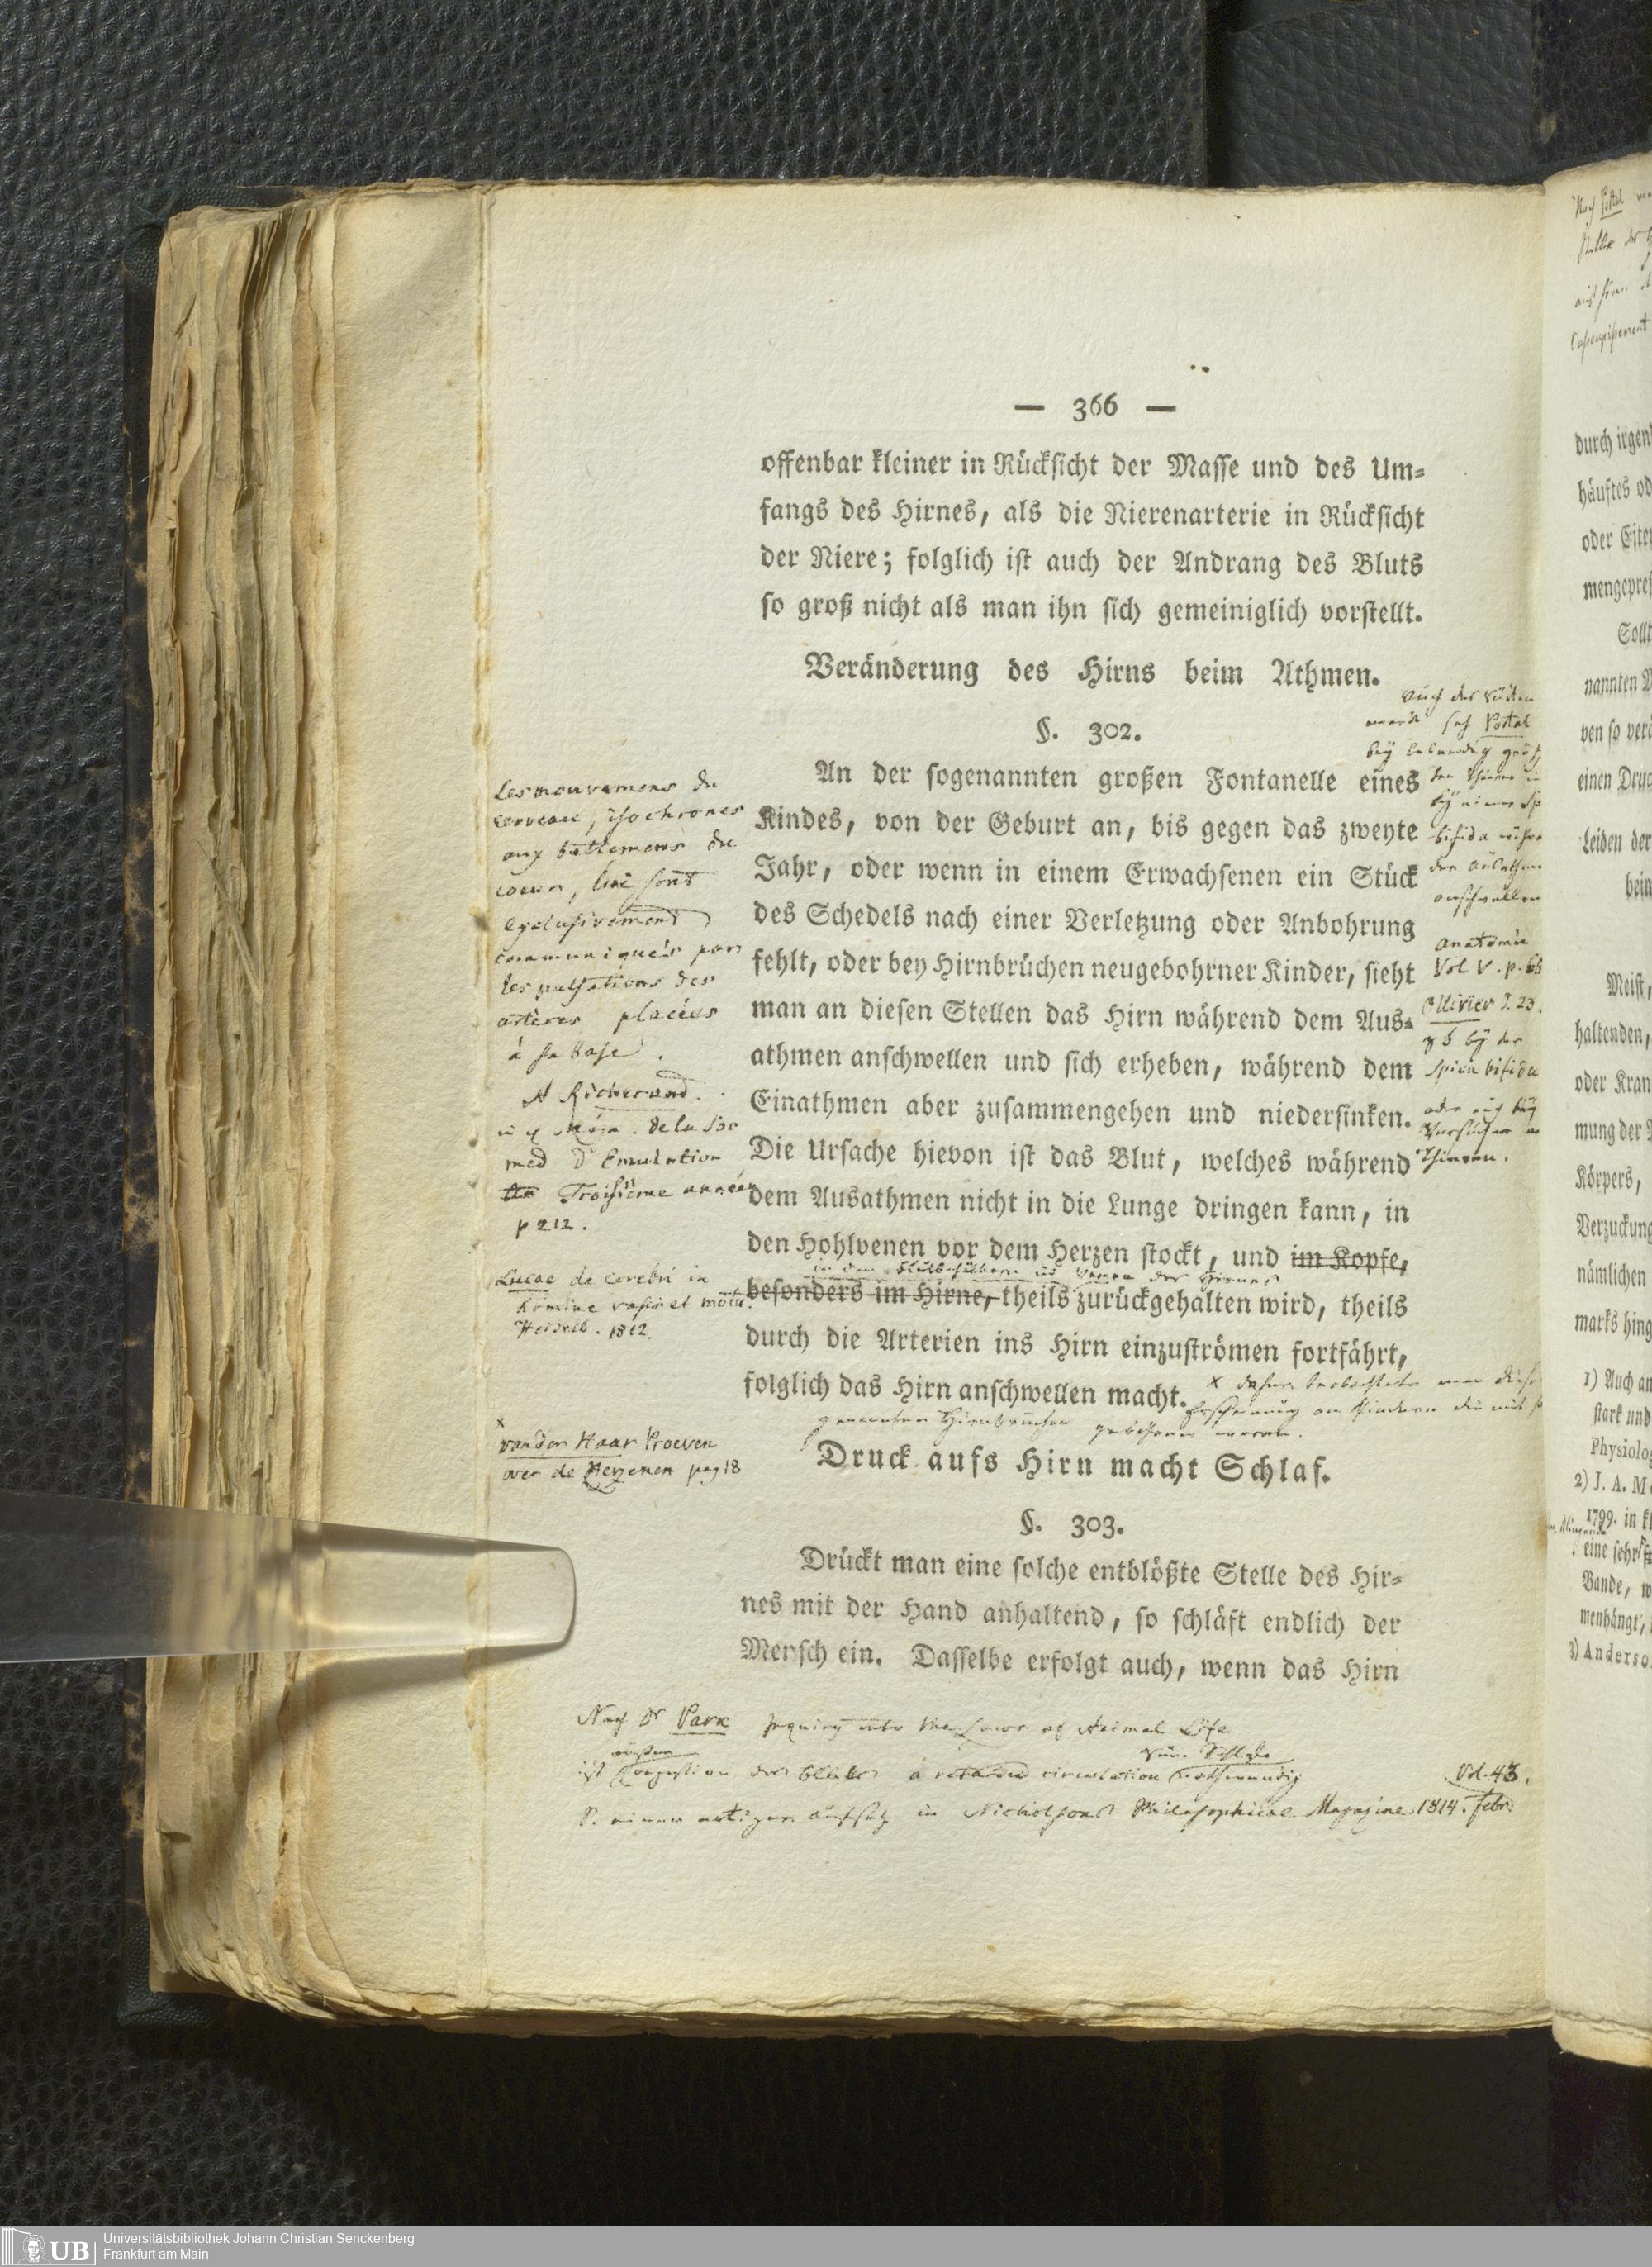 — 366 —
offenbar kleiner in Rücksicht der Masse und des Um-
fangs des Hirnes, als die Nierenarterie in Rücksicht
der Niere; folglich ist auch der Andrang des Bluts
so groß nicht als man ihn sich gemeiniglich vorstellt.
Veränderung des Hirns beim Athmen.
§. 302.
An der sogenannten großen Fontanelle eines
Kindes, von der Geburt an, bis gegen das zweyte
Jahr, oder wenn in einem Erwachsenen ein Stück
des Schedels nach einer Verletzung oder Anbohrung
fehlt, oder bey Hirnbrüchen neugebohrner Kinder, sieht
man an diesen Stellen das Hirn während dem Aus-
athmen anschwellen und sich erheben, während dem
Einathmen aber zusammengehen und niedersinken.
Die Ursache hievon ist das Blut, welches während
dem Ausathmen nicht in die Lunge dringen kann, in
den Hohlvenen vor dem Herzen stockt, und im Kopfe,
besonders im Hirne, theils zurückgehalten wird, theils
durch die Arterien ins Hirn einzuströmen fortfährt,
folglich das Hirn anschwellen macht.
Druck aufs Hirn macht Schlaf.
§. 303.
Drückt man eine solche entblößte Stelle des Hir-
nes mit der Hand anhaltend, so schläft endlich der
Mensch ein. Dasselbe erfolgt auch, wenn das Hirn
Les mouvemens du
cerveau, isochrones
aux battemens du
coeur, lui sont
exclusivement
communiqués par
les pulsations des
artères placées
à sa base.
A Richerand.
Mém. de la Soc
med d'Emulation
Troisième année
p 212.
Lucae de cerebri in
homine vasis et motu.
Heidelb. 1812.
van der Haar Proeven
over de Herzenen pag 18
Portal
Anatomie
Vol V. p. 66
Ollivier P. 23.
spina bifida
Thieren.
x daher beobachtete man diese
Erscheinung an Kindern die mit so
genannten Hirnbrüchen gebohren waren.
Nach Dr Park Inquiry into the Laws of Animal Life
ist Congestion des Blutes a retarded circulation nothwendig
zum Schlafe
S. einen artigen Aufsatz in Nicholsons Philosophical Magazine 1814. Febr.
Vol. 43.
durch irgen
häuftes od
oder Eiter
mengepreß
Sollt
nannten N
ven so verä
einen Druc
Leiden der
bein
Meist,
haltenden,
oder Kran
mung der
Körpers,
Verzuckung
nämlichen
marks hing
1) Auch an
stark und
Physiolog
2) J. A. M
1799. in kl
eine sehr
Bande, w
menhängt,
3) Anderso
UB
Universitätsbibliothek Johann Christian Senckenberg
Frankfurt am Main